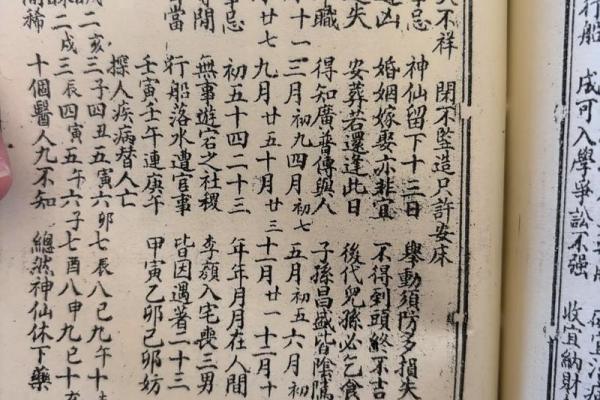 不祥 閉不竪造只許安床
忌 神仙留下十三日 舉動須防多損失
凶 婚姻嫁娶亦非宜 不得到頭終不吉
失 安葬若還逢此日 後代兒孫必乞食
職 得知廣普傳與人 子孫昌盛皆陰隲
十一 三月初九四月初七 五月初五六月初
廿七 九月廿五十月廿三 十一月廿一十二月十
忌 初五十四二十三 年年月月在人間
閒 無事遊宕之社稷 李顏入宅喪三男
當 行船落水遭官事 皆因遇著二十三
壬寅壬午連庚午 甲寅乙卯己卯妨
探人疾病替人亡
二亥三子四丑五寅六卯七辰八巳九午十
二戌三辰四寅五午六子七酉八申九巳十
稀 十個醫人九不知 總然神仙休下藥
行船 成可入學爭訟不強
收宜納財